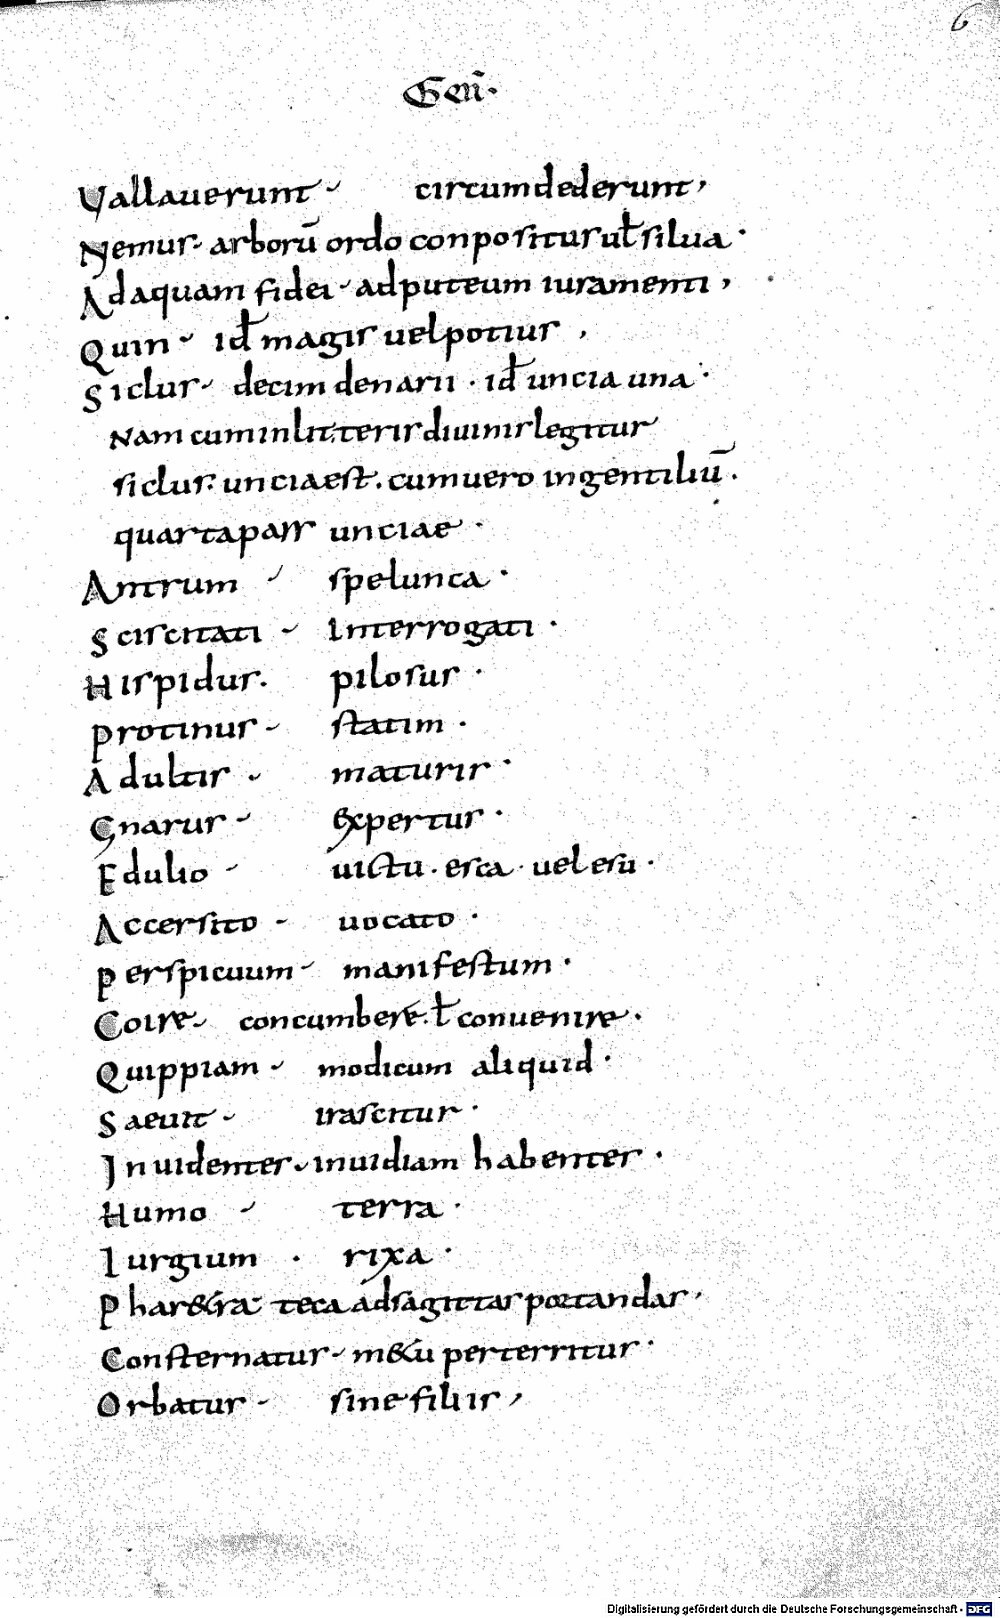 6
Geñ·
Vallauerunt circumdederunt,
Nemur· arborū ordo conpositus uƚ silua·
Ad aquam fidei ad puteum iuramenti,
Quin iđ magis uel potius,
Siclus decim denarii · iđ uncia una·
Nam cum in litteris diuinis legitur
siclus· uncia est. cum uero in gentiliū·
quarta pars unciae·
Antrum spelunca·
Sciscitati Interrogati·
Hispidus. pilosus·
Protinus statim·
Adultis maturis·
Gnarus expertus·
Edulio uictu · esca · uel esu·
Accersito uocato·
Perspicuum manifestum·
Coire concumbere· ƚ conuenire·
Quippiam modicum aliquid·
Saeuit irascitur·
Inuidentes inuidiam habentes·
Humo terra·
Iurgium · rixa·
Phar&ra teca ad sagittas portandas,
Consternatus m&u perterritus·
Orbatus sine filiis,
Digitalisierung gefördert durch die Deutsche Forschungsgemeinschaft - DFG